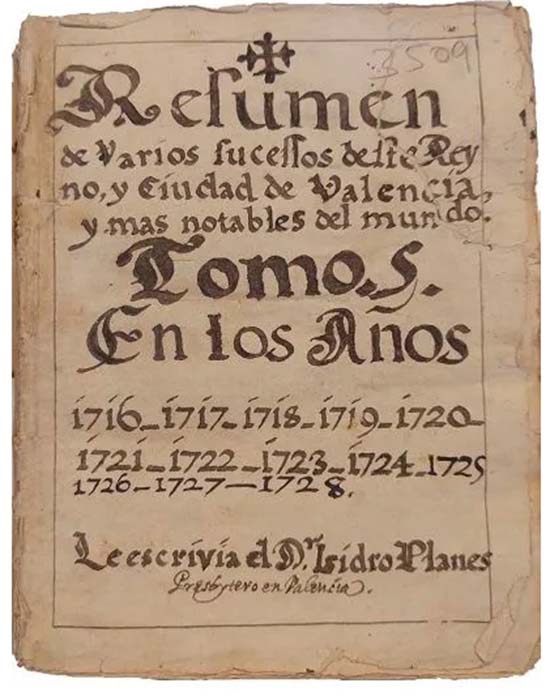 3509
Resumen
de Varios sucessos deste Rey
no, y Ciudad de Valencia,
y mas notables del mundo.
Tomo. 5.
En los Años
1716_1717_1718_1719_1720_
1721_1722_1723_1724_1725
1726_1727_1728.
Le escrivia el Dr. Isidro Planes
Presbytero en Valencia.